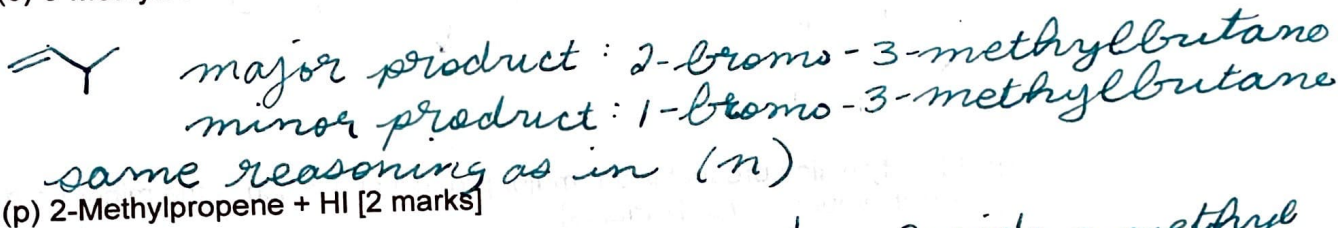 major product : 2-bromo-3-methylbutane
minor product : 1-bromo-3-methylbutane
same reasoning as in (n)
(p) 2-Methylpropene + HI [2 marks]